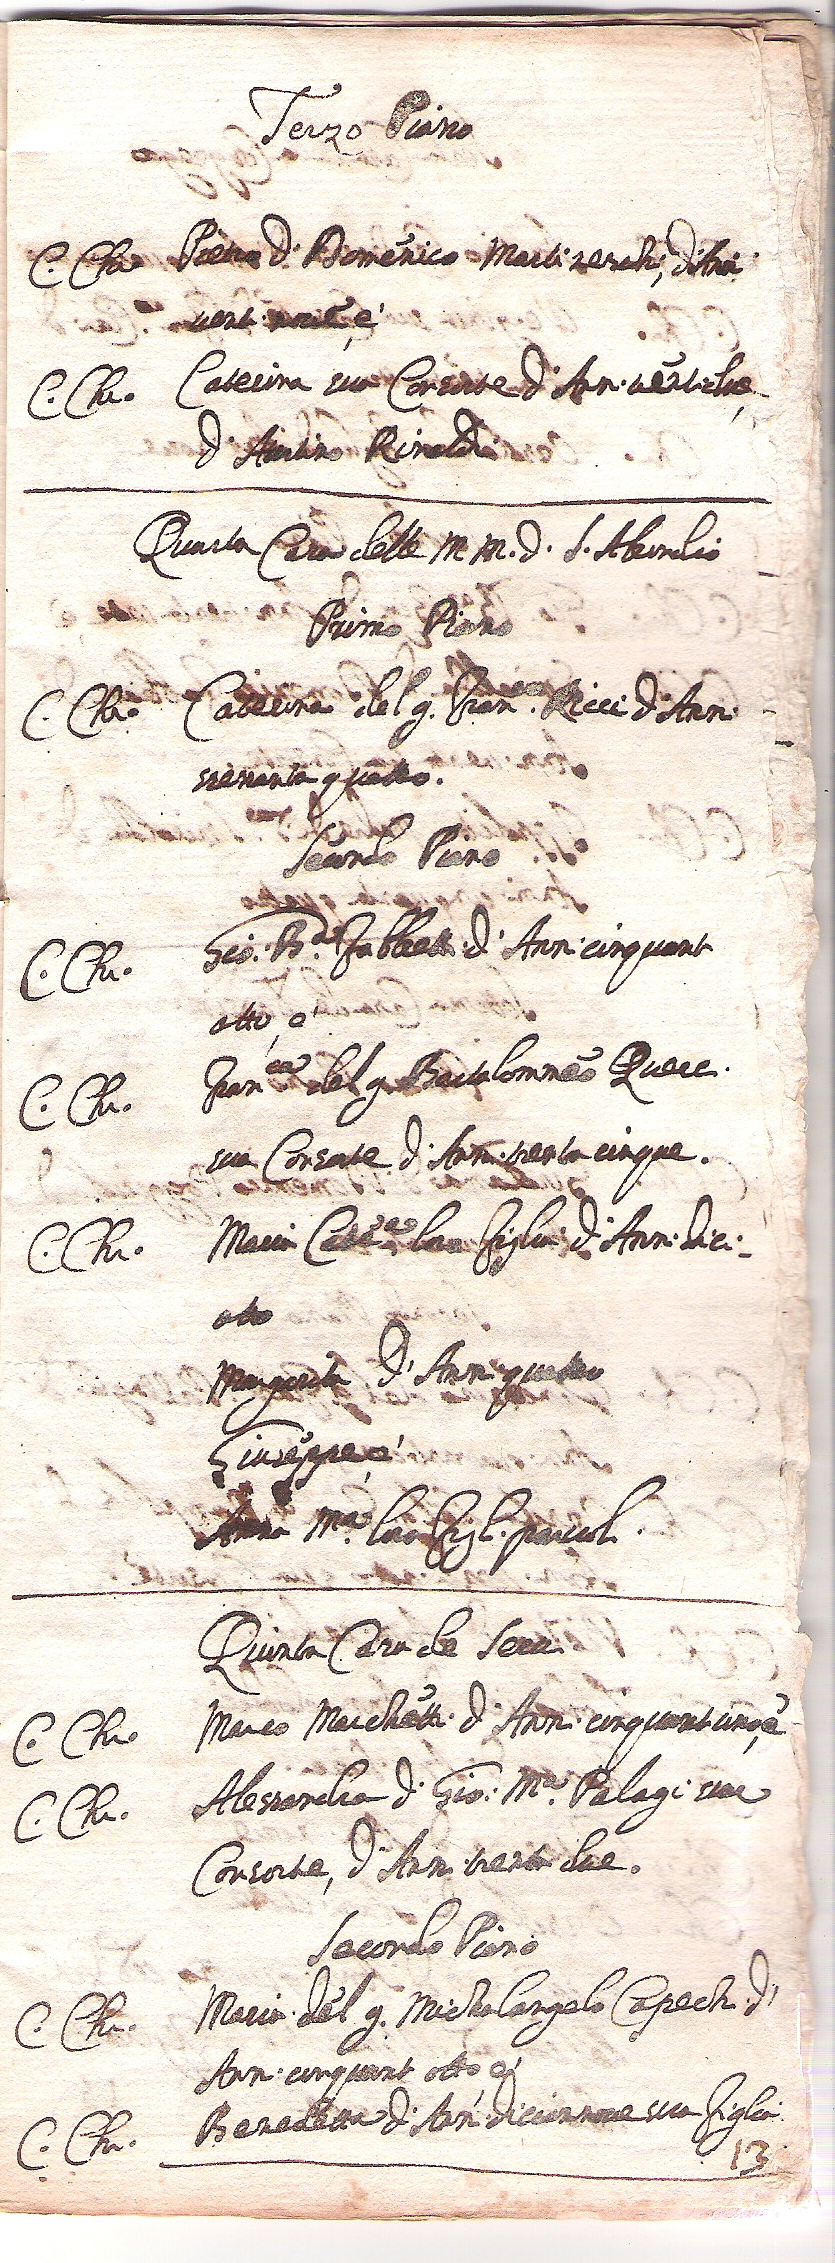 Terzo Piano
C. Chr. Pietro d: Domenico Martizerchi, d'Ani
vent nove, e'
C. Chr. Caterina sua Consorte d' Ann: vent: due,
d' Rinaldi
Quarta Casa delle M M. d. S.
Primo Piano
C. Chr. Caterina del q. Fran.co Ricci d'Ann:
sessanta quattro.
Secondo Piano
C. Chr. Gio: B.a Fabbetti d' Ann: cinquant
otto, e'
C. Chr. Fran.ca del q. Bartolommeo
sua Consorte d' Ann: trenta cinque.
C. Chr. Maria Cat.a loro figlia d' Ann: dici-
otto
Margarita d' Ann: quattro
Giuseppe, e'
Anna M.a loro figl: piccol.
Quinta Casa de
C. Chr. Marco Marchetti d' Ann: cinquant cinq, e
C. Chr. Alessandra d: Gio: M.a Palagi sua
Consorte, d' Ann: trenta due.
Secondo Piano
C. Chr. Maria del q. Michelangelo Capechi d'
Ann: cinquant otto e'
C. Chr. Benedetta d: Ann: diciannove sua figlia
13